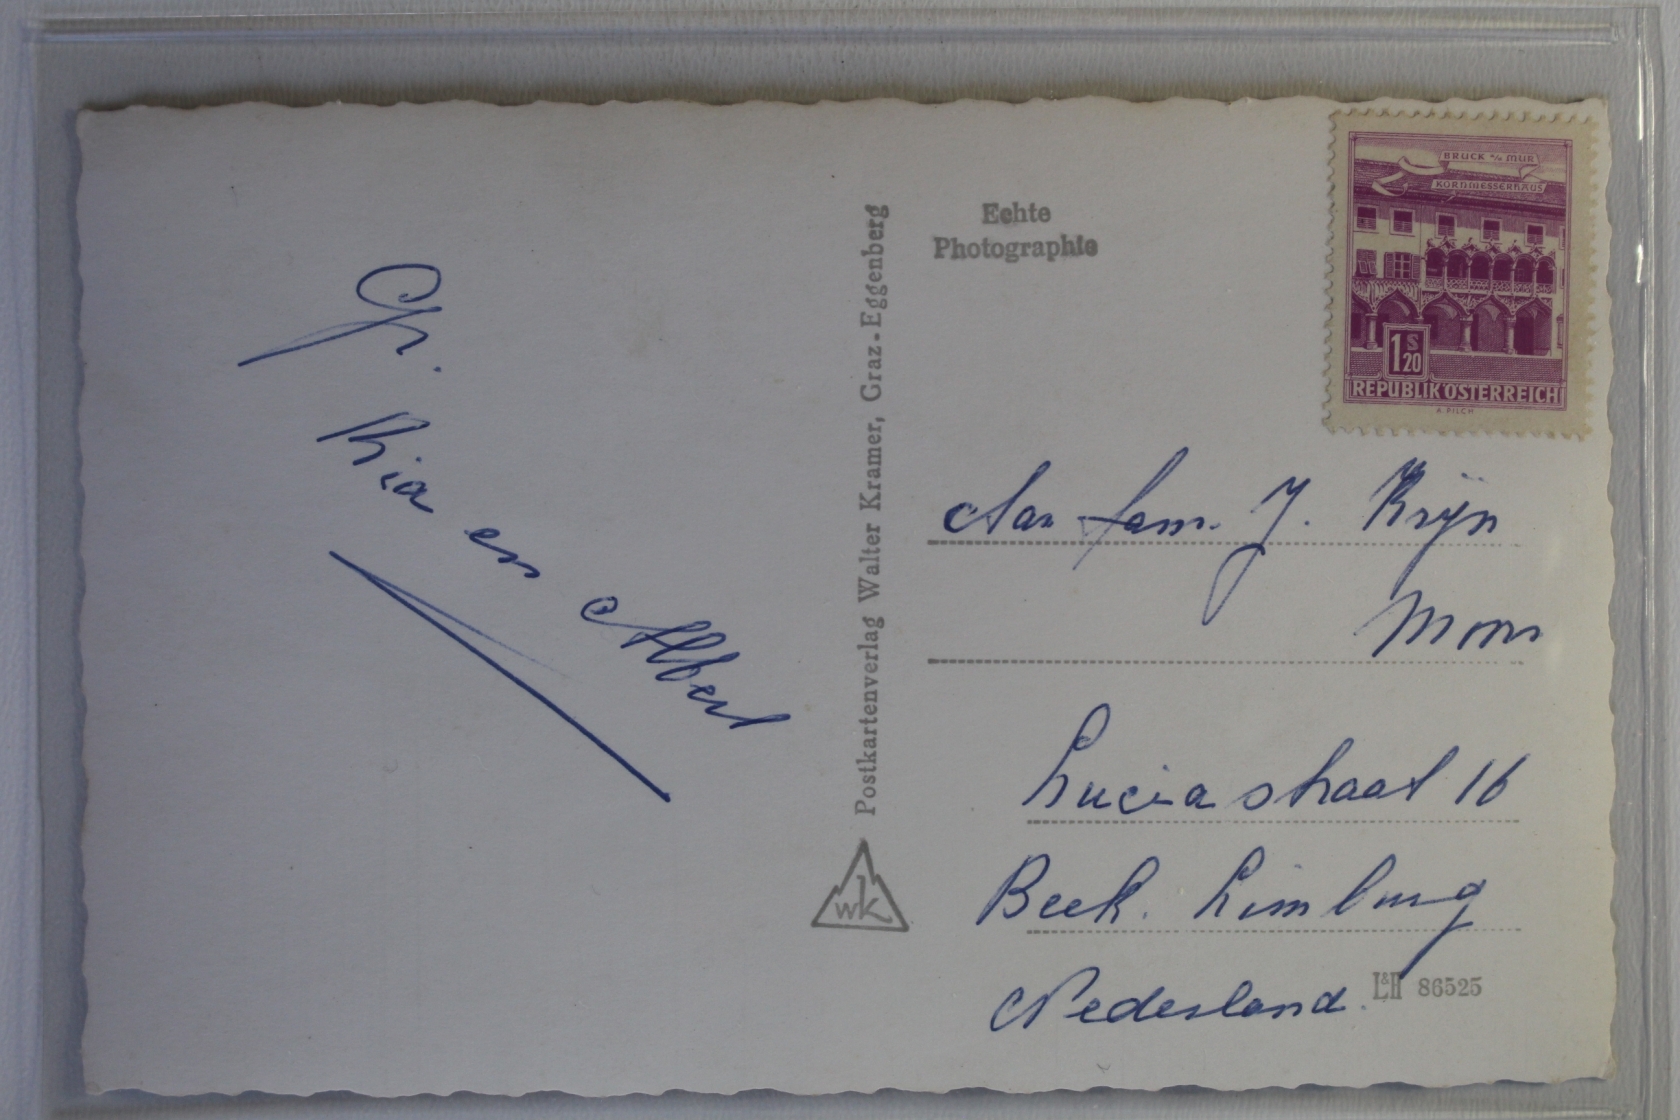 BRUCK a/d MUR
KORNMESSERHAUS
1 S 20
REPUBLIK ÖSTERREICH
A. PILCH
Echte
Photographie
Postkartenverlag Walter Kramer, Graz-Eggenberg
WK
Gr.
Ria en Albert
Aan fam. J. Krijn
Mom
Luciastraat 16
Beek. Limburg
Nederland.
L&H 86525